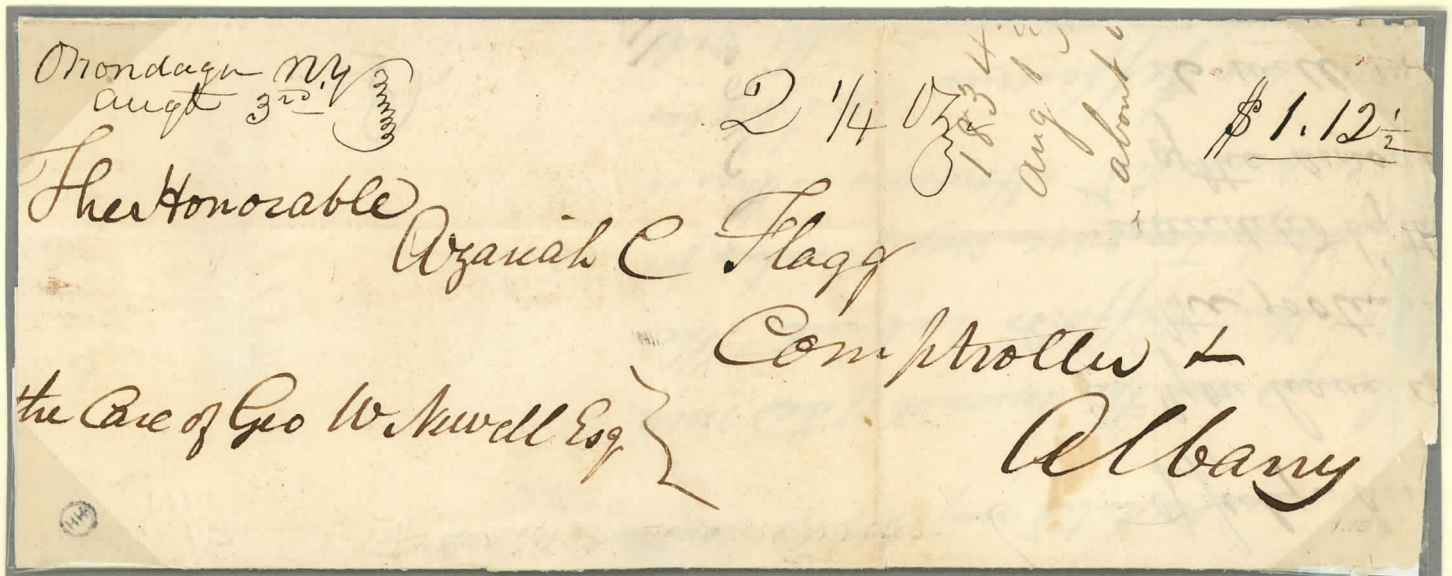 Onondaga N.Y
Augt 3rd.
2 1/4 Oz
$1.12 1/2
1834
Aug
about
The Honorable
Azariah C Flagg
Comptroller &
Albany
the Care of Geo W Newell Esq
HH